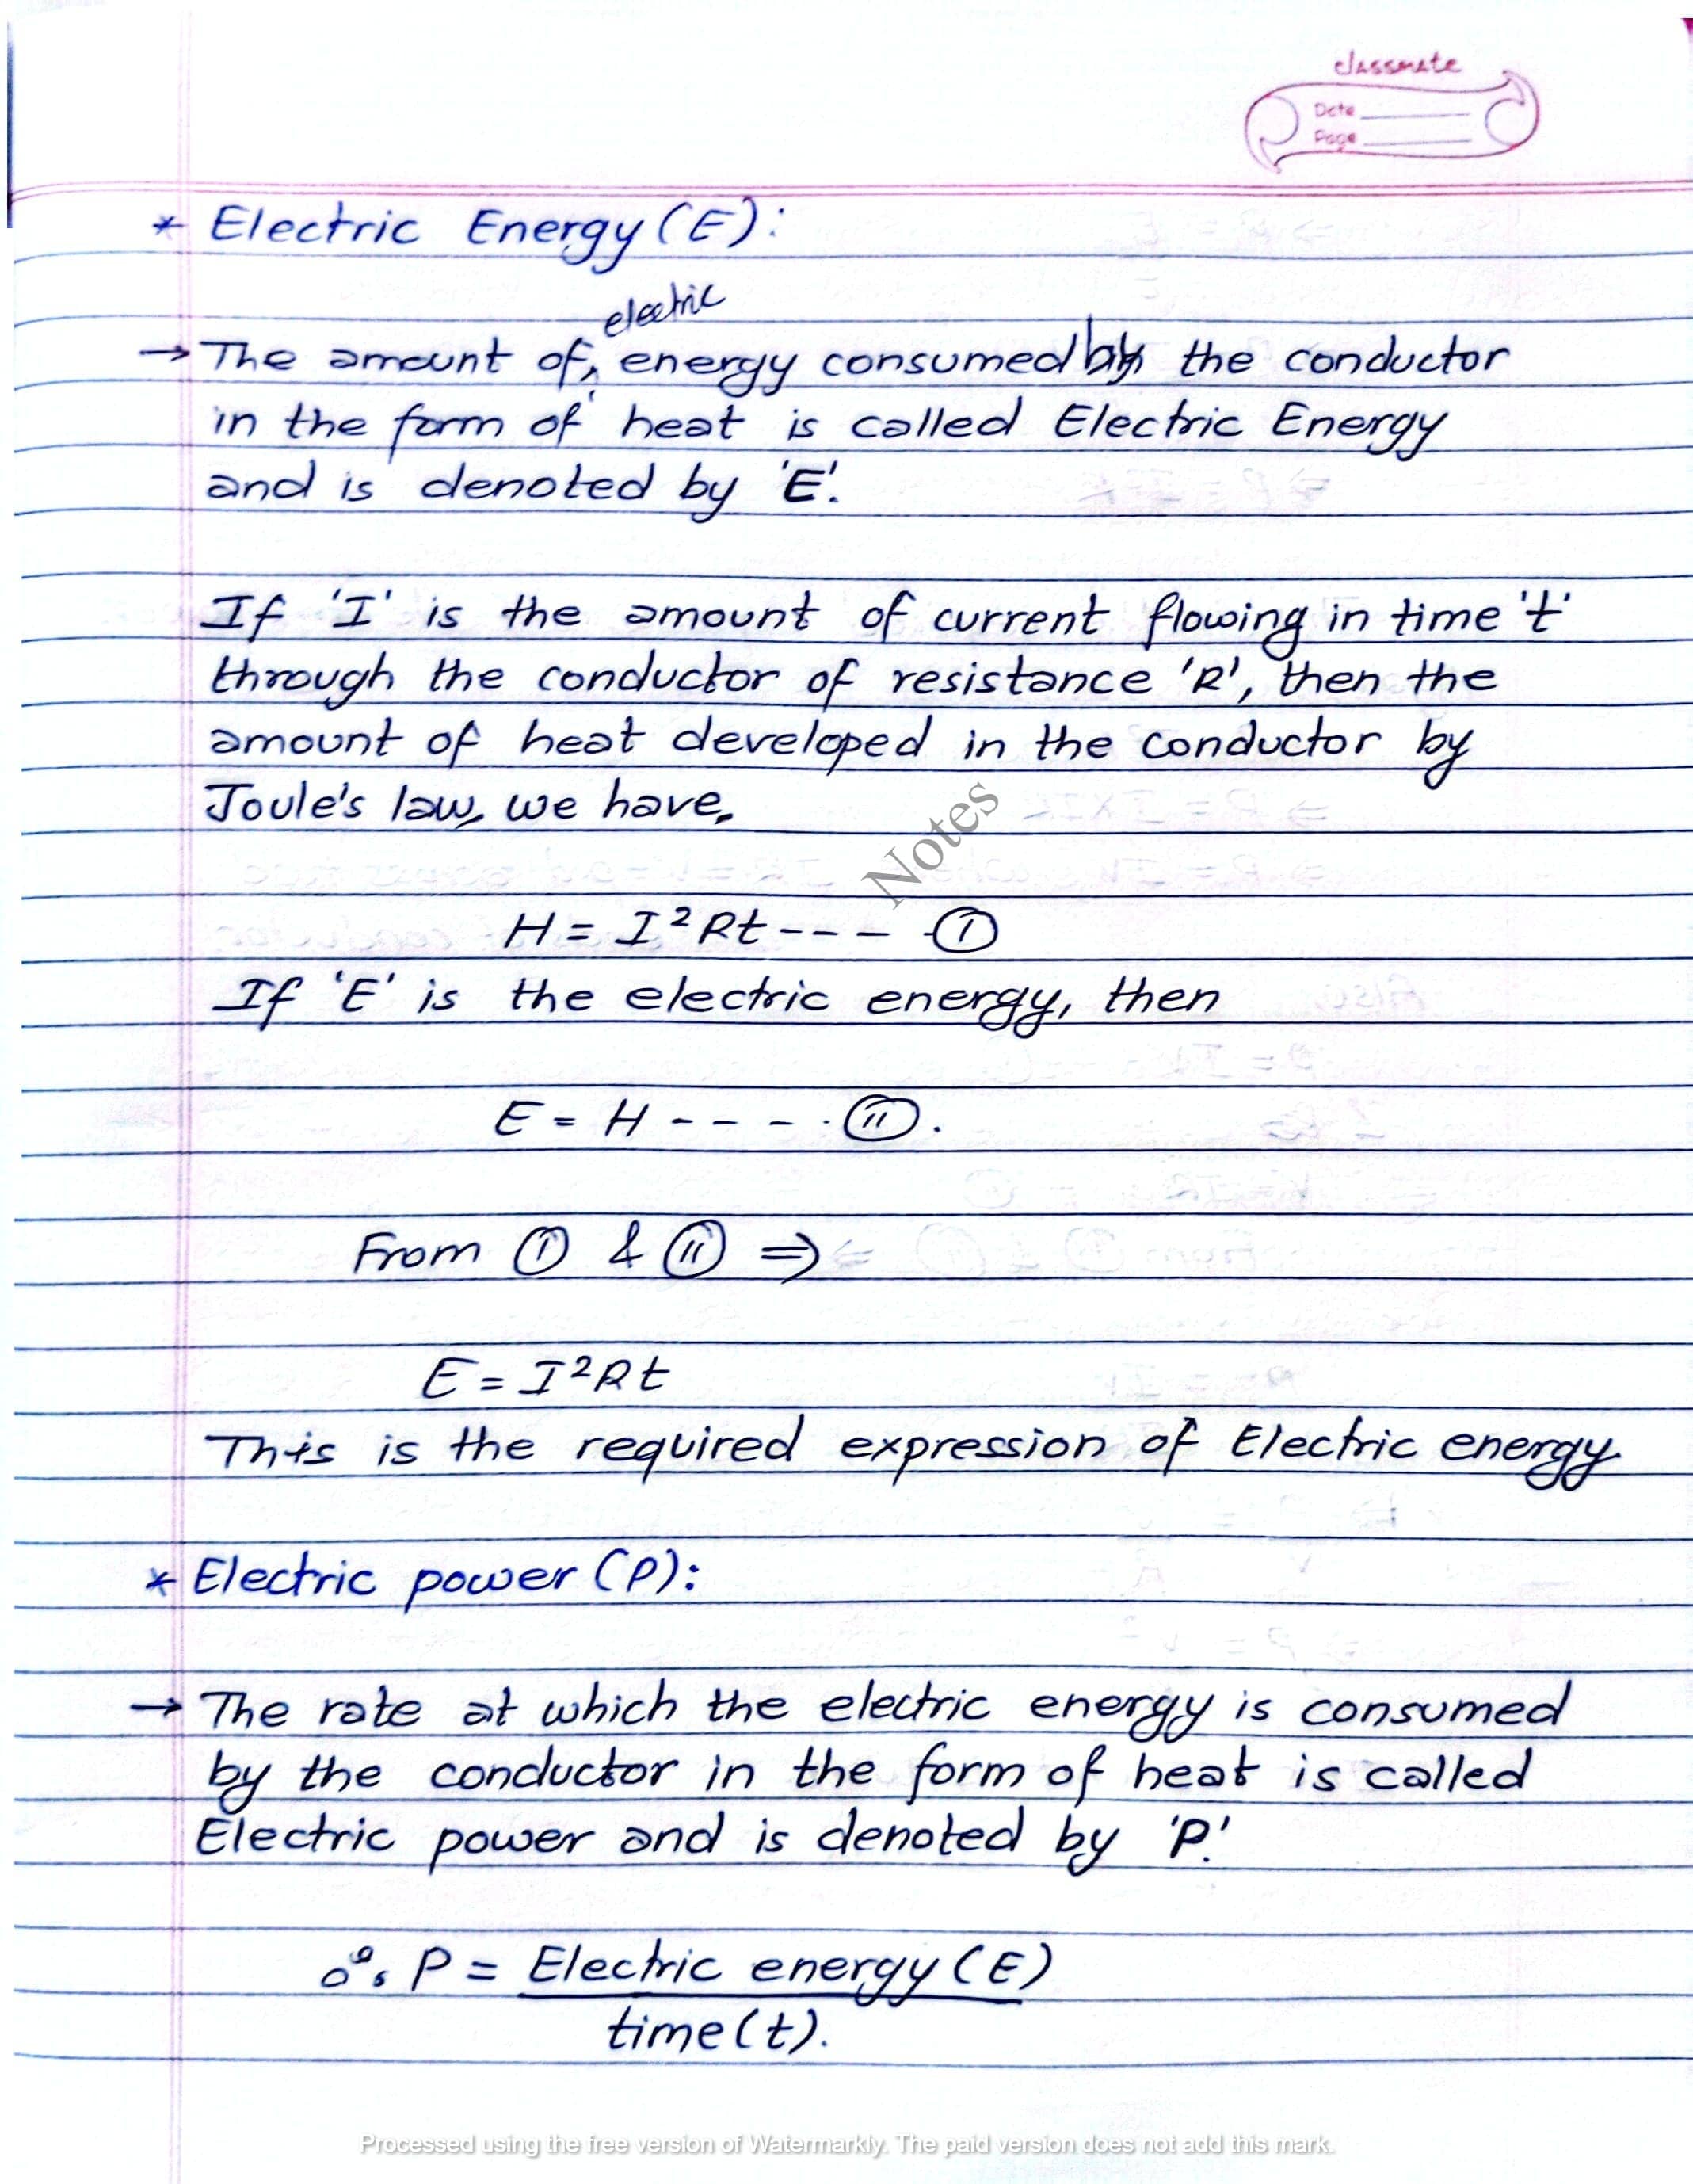 classmate
Date
Page
* Electric Energy (E):
electric
→ The amount of, energy consumed by the conductor
in the form of heat is called Electric Energy
and is denoted by 'E'.
If 'I' is the amount of current flowing in time 't'
through the conductor of resistance 'R', then the
amount of heat developed in the conductor by
Joule's law, we have,
Notes
H = I²Rt - - - - (I)
If 'E' is the electric energy, then
E = H - - - - (II).
From (I) & (II) ⇒
E = I²Rt
This is the required expression of Electric energy.
* Electric power (P):
→ The rate at which the electric energy is consumed
by the conductor in the form of heat is called
Electric power and is denoted by 'P'.
∴ P = Electric energy (E)
time (t).
Processed using the free version of Watermarkly. The paid version does not add this mark.